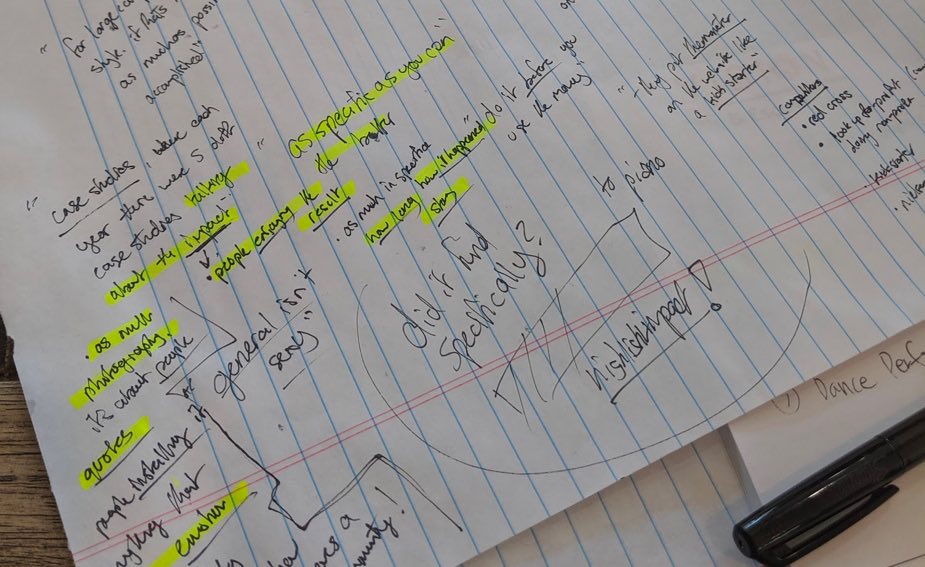 " for large
style. if that's
as much as possi
accomplished"
" case studies, where each
year there were 5 diff
case studies talking
about the impact
• as much
photography.
it's about people
quotes
people installing it
anything that
emotion
" as specific as you can"
• people enjoying the
the better
result
general isn't
sexy"
• as much in specific
how long how it happened
stay
do it before you
use the money"
did it fund
specifically?
to piano
highlight impact!
"- They put thermometer
on the website like
a kickstarter"
competitors
• red cross
• look up
• kickstarter
① Dance Deaf